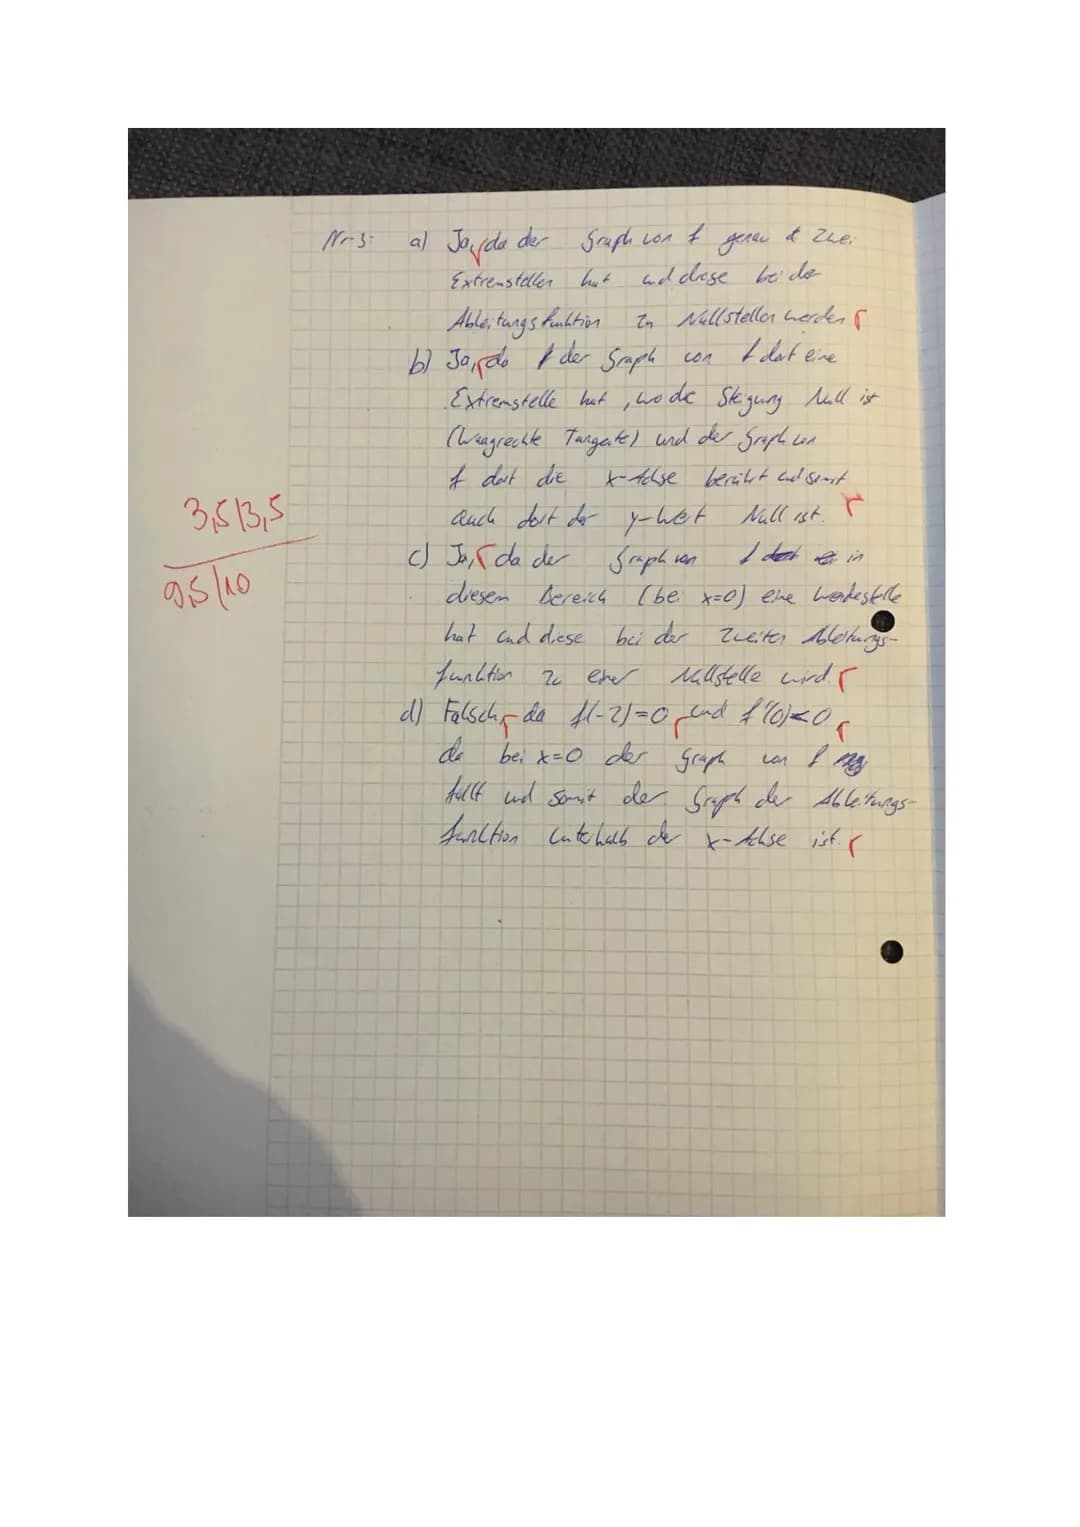 Nr. 3: a) Ja, da der Graph von f genau zwei
Extremstellen hat und diese bei der
Ableitungsfunktion zu Nullstellen werden
b) Ja, da der Graph von f dort eine
Extremstelle hat, wo die Steigung Null ist
(Waagrechte Tangente) und der Graph von
f dort die x-Achse berührt und somit
auch dort der y-Wert Null ist.
3,5/3,5
9,5/10
c) Ja, da der Graph von f in
diesem Bereich (bei x=0) eine Wendestelle
hat und diese bei der zweiten Ableitungs-
funktion zu einer Nullstelle wird.
d) Falsch, da f(-2)=0 und f'(0)<0,
da bei x=0 der Graph von f
fällt und somit der Graph der Ableitungs-
funktion unterhalb der x-Achse ist.